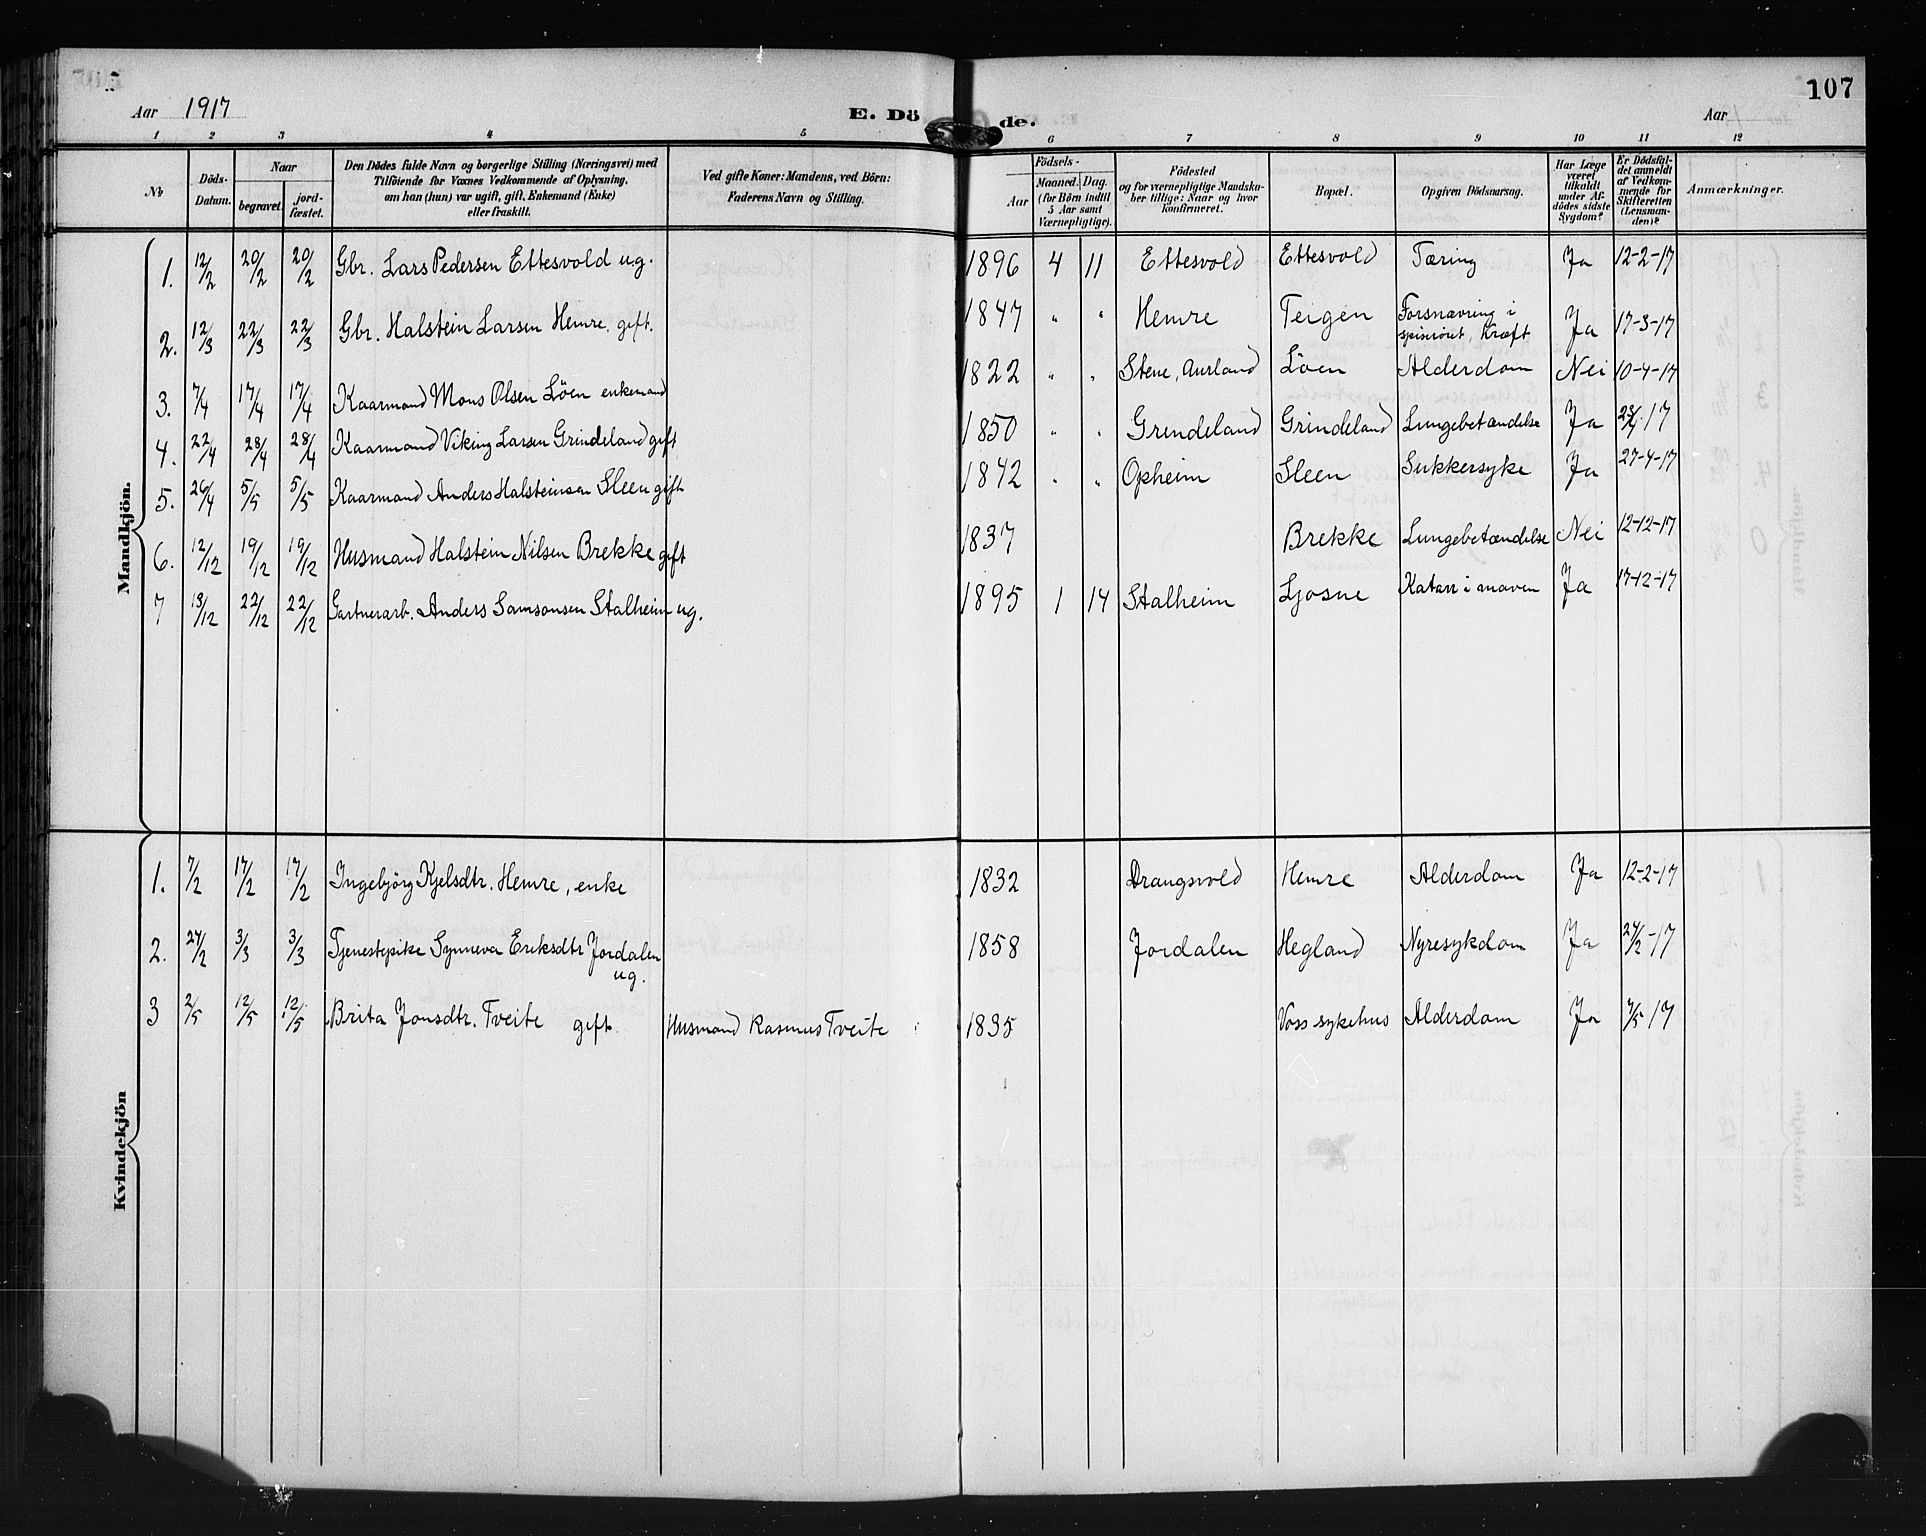 107
Aar 1917
E. Dö de.
Aar
1 2 3 4 5 6 7 8 9 10 11 12
No
Döds-
Datum.
Naar
begravet.
jord-
fæstet.
Den Dödes fulde Navn og borgerlige Stilling (Næringsvei) med
Tilföiende for Voxnes Vedkommende af Oplysning,
om han (hun) var ugift, gift, Enkemand (Enke)
eller fraskilt.
Ved gifte Koner: Mandens, ved Börn:
Faderens Navn og Stilling.
Födsels-
Aar
Maaned. Dag.
(for Börn indtil
5 Aar samt
Værnepligtige).
Födested
og for værnepligtige Mandska-
ber tillige: Naar og hvor
konfirmeret.
Bopæl.
Opgiven Dödsaarsag.
Har Læge
været
tilkaldt
under Af-
dödes sidste
Sygdom?
Er Dödsfal-
det anmeldt
af Vedkom-
mende for
Skifteretten
(Lensman-
den)?
Anmærkninger.
Mandkjön.
1. 12/2 20/2 20/2 Gbr. Lars Pedersen Ettesvold ug. 1896 4 11 Ettesvold Ettesvold Tæring Ja 12-2-17
2. 12/3 22/3 22/3 Gbr. Halstein Larsen Hemre, gift. 1847 " " Hemre Teigen Forsnævring i
spiserøret, Kræft Ja 17-3-17
3. 7/4 17/4 17/4 Kaarmand Mons Olsen Löen enkemand 1822 " " Stene, Aurland Löen Alderdom Nei 10-4-17
4. 22/4 28/4 28/4 Kaarmand Viking Larsen Grindeland gift 1850 " " Grendeland Grindeland Lungebetændelse Ja 23/4-17
5. 26/4 5/5 5/5 Kaarmand Anders Halsteinsen Sleen gift 1842 " " Opheim Sleen Sukkersyke Ja 27-4-17
6. 12/12 19/12 19/12 Husmand Halstein Nilsen Brekke gift 1837 Brekke Lungebetændelse Nei 12-12-17
7 13/12 22/12 22/12 Gartnerarb. Anders Samsonsen Stalheim ug. 1895 1 14 Stalheim Ljosne Katarr i maven Ja 17-12-17
Kvindekjön
1. 7/2 17/2 17/2 Ingebjörg Kjelsdtr. Hemre, enke 1832 Drangsvold Hemre Alderdom Ja 12-2-17
2. 24/2 3/3 3/3 Tjenestepike Synneva Eriksdtr Jordalen
ug. 1858 Jordalen Hegland Nyresykdom Ja 24/2-17
3 2/5 12/5 12/5 Brita Jonsdtr. Tveite gift. Husmand Rasmus Tveite 1835 Voss sykehus Alderdom Ja 7/5 17